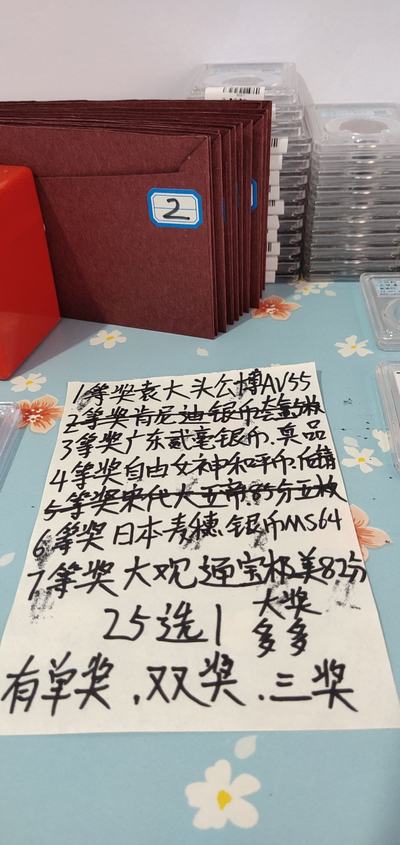 2
1等奖袁大头公博AV55
2等奖肯尼迪银币套盒5枚
3等奖广东贰毫银币.真品
4等奖自由女神和平币.后铸
5等奖宋代大五帝.85分五枚
6等奖日本麦穗银币MS64
7等奖大观通宝极美82分
25选1
大奖
多多
有单奖.双奖.三奖